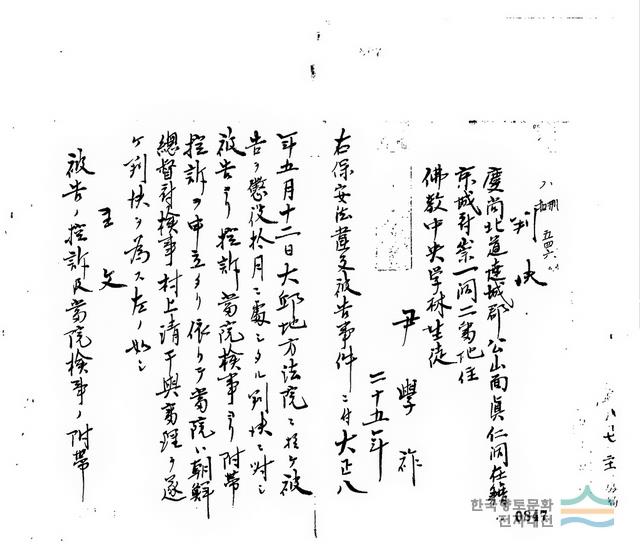 判決
慶尚北道達城郡公山面眞仁洞在籍
京城府崇一洞二番地住
佛教中央学林生徒
尹學祚
二十五年
右保安法違反被告事件ニ付大正八
年五月十二日大邱地方法院ニ於テ被
告ヲ懲役拾月ニ處シタル判決ニ対シ
被告ヨリ控訴當院検事ヨリ附帯
控訴ヲ申立タリ依リテ當院ハ朝鮮
總督府検事村上清干與審理ヲ遂
ケ判決ヲ為ス左ノ如シ
主文
被告ノ控訴及當院検事ノ附帯
한국향토문화
전자대전
0847